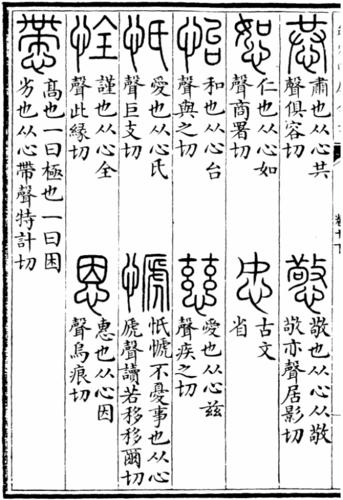 恭
肅也从心共
聲俱容切
憼
敬也从心从敬
敬亦聲居影切
恕
仁也从心如
聲商署切
古文
省
怡
和也从心台
聲與之切
慈
愛也从心茲
聲疾之切
忯
愛也从心氏
聲巨支切
㦒
忯㦒不憂事也从心
虒聲讀若移移爾切
恮
謹也从心全
聲此緣切
恩
惠也从心因
聲烏痕切
慸
高也一曰極也一曰困
劣也从心帶聲特計切